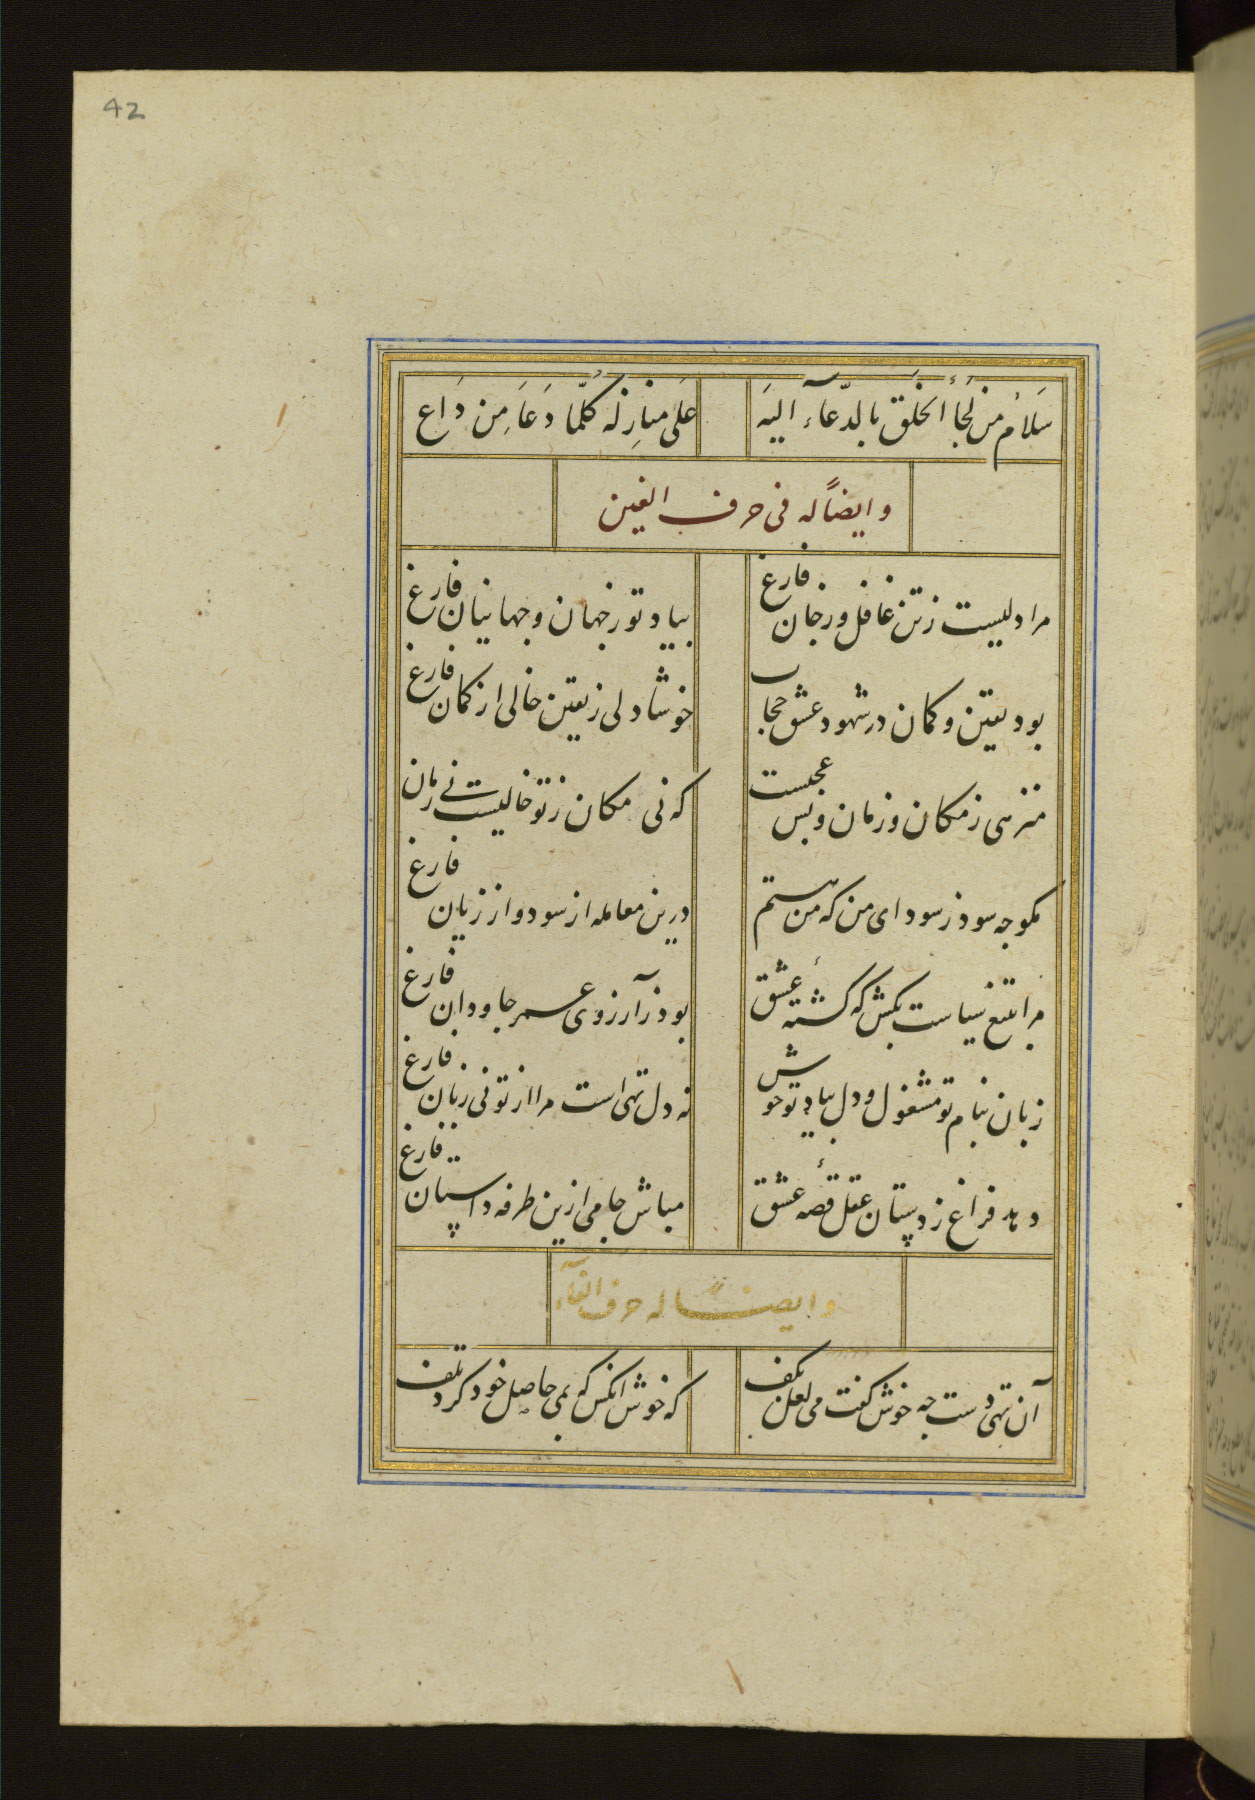 42
سَلامُ من لَجَأَ الخَلق بالدّعآء الیَه
عَلی منازِله کُلّما دَعَا مِن دَاعِ
وایضاً له فی حرف الغین
مرا دلیست زتن غافل و زجان فارغ
بیاد تو زجهان و جهانیان فارغ
بود یقین و کمان در شهود عشق حجاب
خوشا دلی زیقین خالی از کمان فارغ
منزهی زمکان و زمان و بس عجبست
که نی مکان زتو خالیست نے زمان فارغ
مکو چه سود ز سودای من که من هستم
درین معامله از سود و از زیان فارغ
مرا بتیغ سیاست بکش که کشتهٔ عشق
بود زآرزوی عمر جاودان فارغ
زبان بنام تو مشغول و دل بیاد تو خوش
نه دل تهی است مرا از تو نی زبان فارغ
دهد فراغ زدستان عقل قصهٔ عشق
مباش جامی ازین طرفه داستان فارغ
وایضاً له حرف الفآء
آن تهی دست چه خوش کفت می لعل بکف
که خوش آنکس که بمی حاصل خود کرد تلف